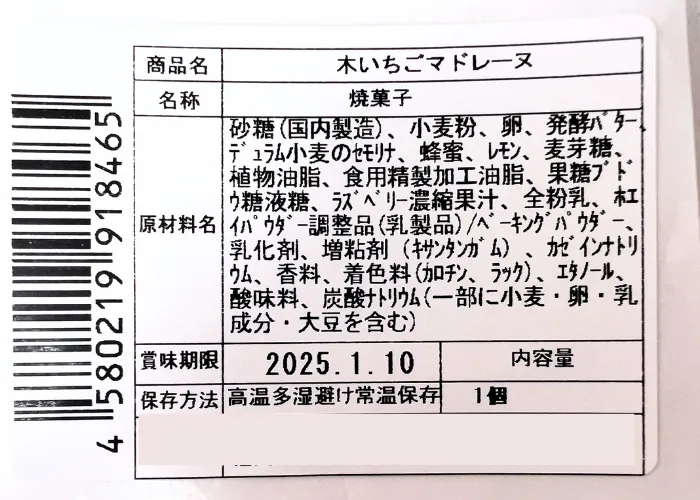 商品名 木いちごマドレーヌ
名称 焼菓子
原材料名
砂糖(国内製造)、小麦粉、卵、発酵ﾊﾞﾀｰ、
ﾃﾞｭﾗﾑ小麦のｾﾓﾘﾅ、蜂蜜、ﾚﾓﾝ、麦芽糖、
植物油脂、食用精製加工油脂、果糖ﾌﾞﾄﾞ
ｳ糖液糖、ﾗｽﾞﾍﾞﾘｰ濃縮果汁、全粉乳、ﾎｴ
ｲﾊﾟｳﾀﾞｰ調整品(乳製品)/ﾍﾞｰｷﾝｸﾞﾊﾟｳﾀﾞｰ、
乳化剤、増粘剤(ｷｻﾝﾀﾝｶﾞﾑ)、ｶｾﾞｲﾝﾅﾄﾘ
ｳﾑ、香料、着色料(ｶﾛﾁﾝ、ﾗｯｸ)、ｴﾀﾉｰﾙ、
酸味料、炭酸ﾅﾄﾘｳﾑ(一部に小麦・卵・乳
成分・大豆を含む)
賞味期限 2025.1.10 内容量
保存方法 高温多湿避け常温保存 1個
4 580219 918465